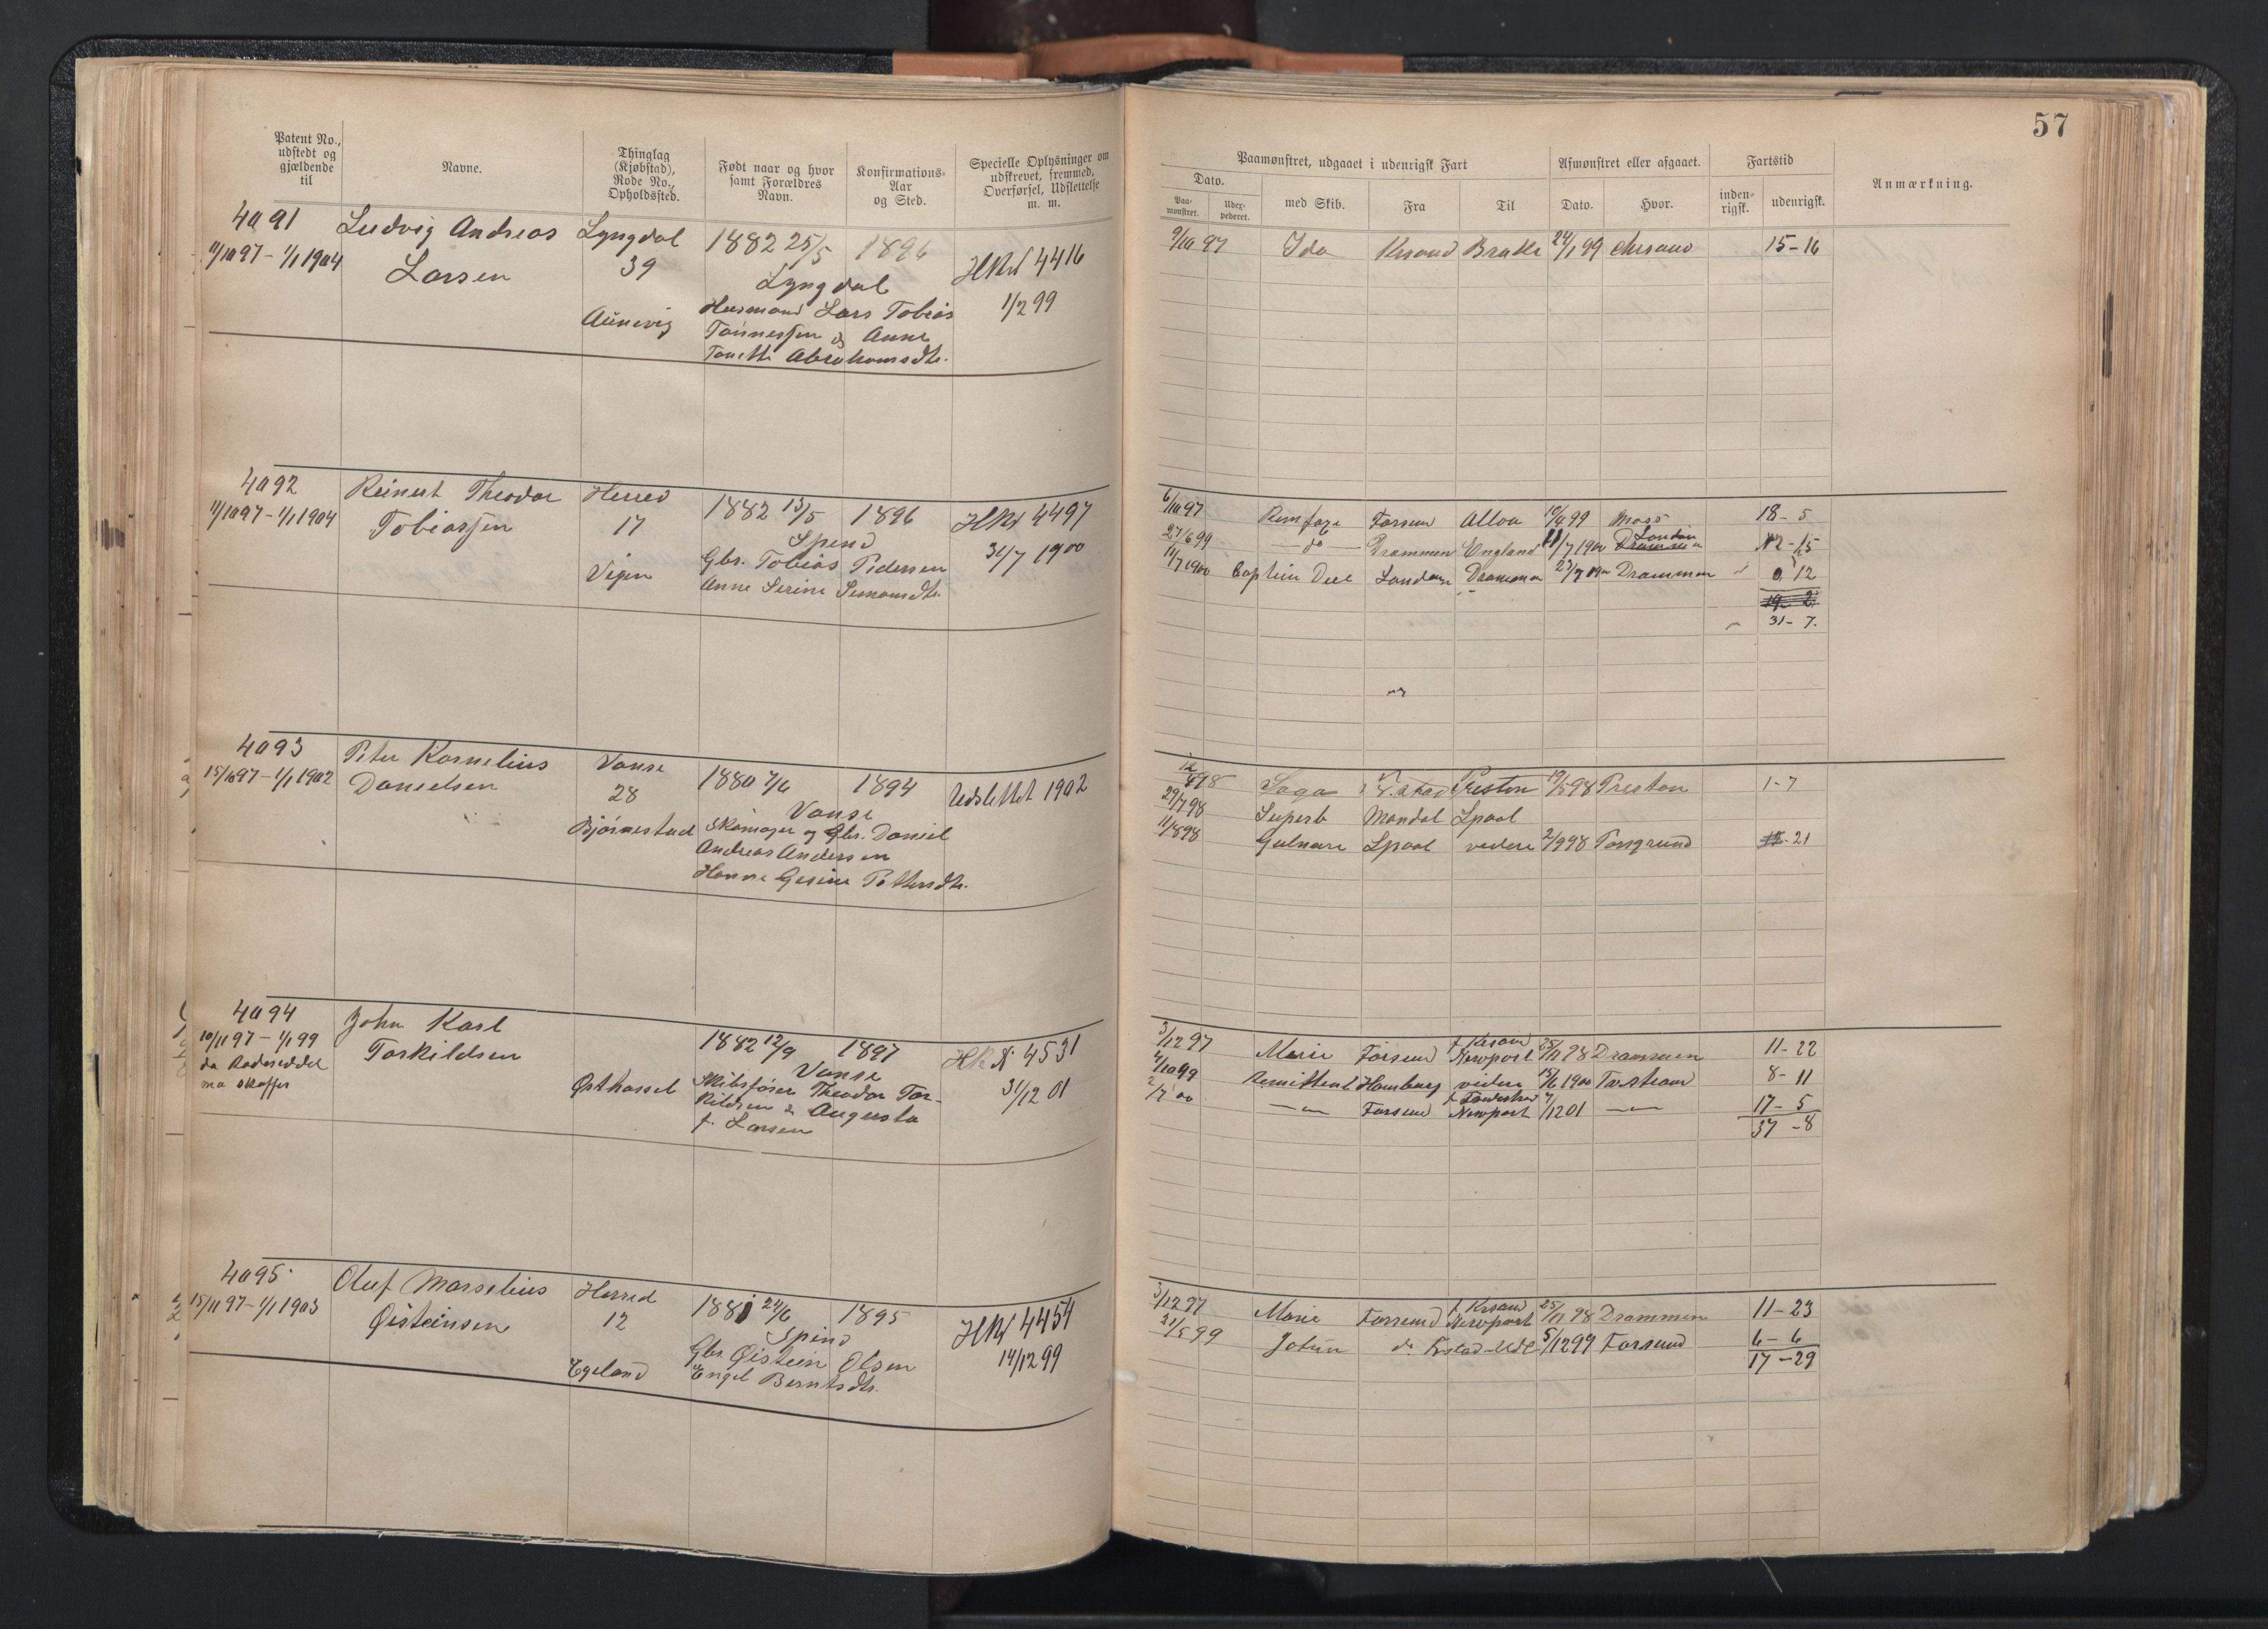 57
Patent No., udstedt og gjældende til
Navne.
Thinglag (Kjøbstad), Rode No., Opholdssted.
Født naar og hvor samt Forældres Navn.
Konfirmations-Aar og Sted.
Specielle Oplysninger om udskrevet, fremmed, Overførsel, Udslettelse m. m.
Paamønstret, udgaaet i udenrigsk Fart
Afmønstret eller afgaaet.
Fartstid
Anmærkning.
Dato.
Paa-mønstret.
Udex-pederet.
med Skib.
Fra
Til
Dato.
Hvor.
inden-rigsk.
udenrigsk.
4091 Ludvig Andreas Lyngdal 1882 25/5 1896
11/10 97 - 1/1 1904 Larsen 39 Lyngdal HRd 4416
Husmand Lars Tobias 1/2 99
Tønnessen & Anne
Abrahamsdtr.
9/10 97 Ida Krsand Brake 24/1 99 15-16
4092 Reinert Theodor Herred 1882 13/5 1896 HRd 4497
11/10 97 - 1/1 1904 Tobiassen 17 Spind 31/7 1900
Vigen Gbr. Tobias Pedersen
Anne Serine
6/10 97 Farsund Alloa 99 Moss 18-5
27/6 99 - do - Drammen England 11/7 1900 London 12-15
11/7 1900 London Drammen 23/7 Drammen 0 12
31-7.
4093 Peter Kornelius Vanse 1880 7/6 1894 Udslettet 1902
15/10 97 - 1/1 1902 Danielsen 28 Vanse
Bjørnestad Skomager og Gbr. Daniel
Andreas Andersen
Hanne Gesine
12/4 98 Saga Preston 19/5 98 Preston 1-7
29/7 98 Superb Mandal Lpool
11/8 98 Gulnare Lpool videre 2/9 98 Porsgrund 21
4094 John Karl 1882 12/9 1897 HRd 4531
10/11 97 - 1/1 99 Torkildsen Vanse 31/12 01
da Radeseddel Østhassel Skibsfører Theodor Tor-
ma skaffes kildsen & Augusta
f. Larsen
3/12 97 Marie Farsund f Krsand Newport 25/11 98 Drammen 11-22
4/10 99 Remittent Hamburg videre 15/6 1900 8-11
2/7 00 Farsund Newport /12 01 17-5
37-8
4095 Oluf Marselius Herred 1881 24/6 1895 HRd 4454
15/11 97 - 1/1 1903 Øisteinsen 12 Spind 14/12 99
Egeland Gbr. Øistein Olsen
Engel Berntsdtr.
3/12 97 Marie Farsund f Krsand Newport 25/11 98 Drammen 11-23
31/5 99 Jotun 5/12 99 Farsund 6-6
17-29